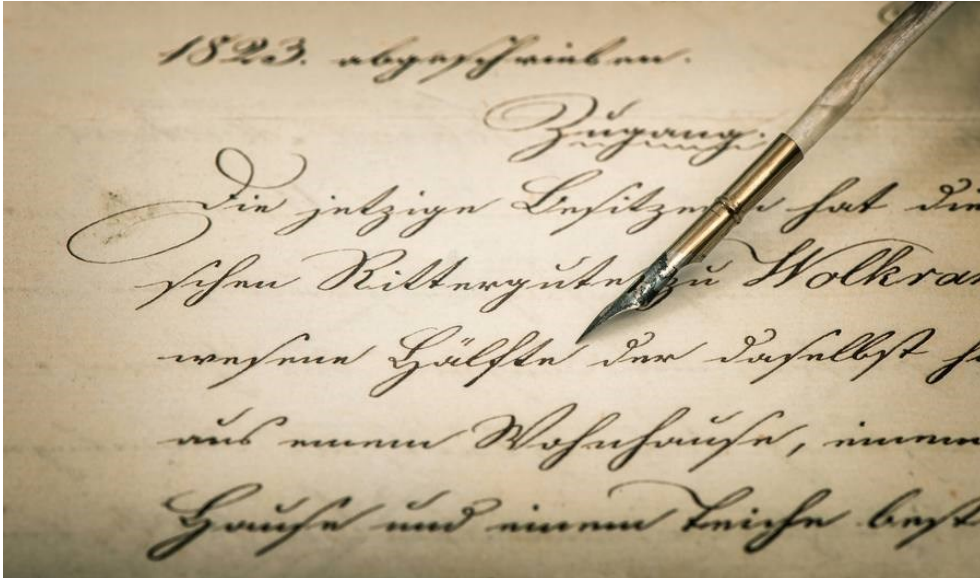 1823. abgeschrieben.
Zugang.
Die jetzige Besitzerin hat die
schen Rittergute zu Wolkra
wesene Hälfte der daselbst
aus einem Wohnhause, einem
Hause und einem Teiche best